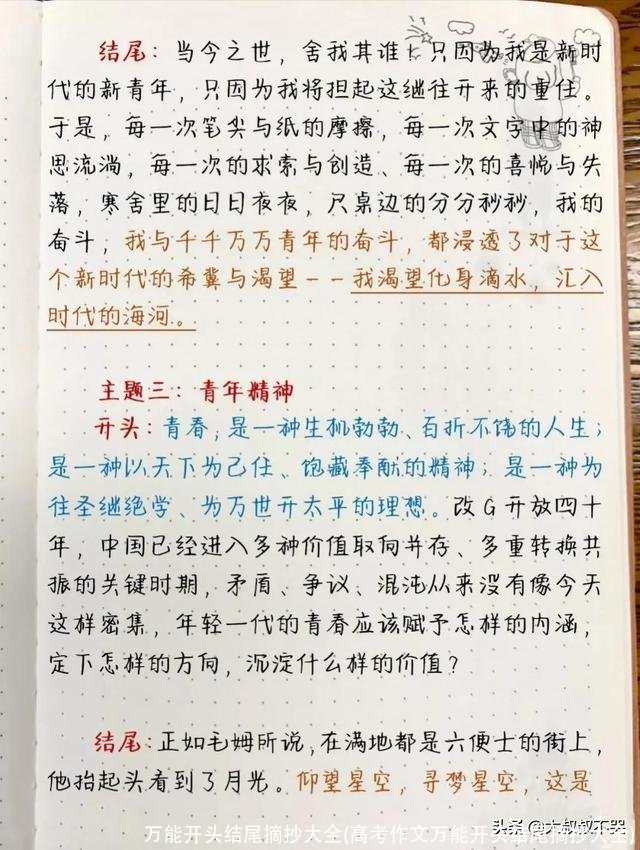 结尾：当今之世，舍我其谁！只因为我是新时
代的新青年，只因为我将担起这继往开来的重任。
于是，每一次笔尖与纸的摩擦，每一次文字中的神
思流淌，每一次的求索与创造、每一次的喜悦与失
落，寒舍里的日日夜夜，尺桌边的分分秒秒，我的
奋斗，我与千千万万青年的奋斗，都浸透了对于这
个新时代的希冀与渴望——我渴望化身滴水，汇入
时代的海河。
主题三：青年精神
开头：青春，是一种生机勃勃、百折不饶的人生；
是一种以天下为己任、饱藏奉献的精神；是一种为
往圣继绝学、为万世开太平的理想。改G开放四十
年，中国已经进入多种价值取向并存、多重转换共
振的关键时期，矛盾、争议、混沌从来没有像今天
这样密集，年轻一代的青春应该赋予怎样的内涵，
定下怎样的方向，沉淀什么样的价值？
结尾：正如毛姆所说，在满地都是六便士的街上，
他抬起头看到了月光。仰望星空，寻梦星空，这是
头条@大叔叔不器
万能开头结尾摘抄大全(高考作文万能开头结尾摘抄大全)